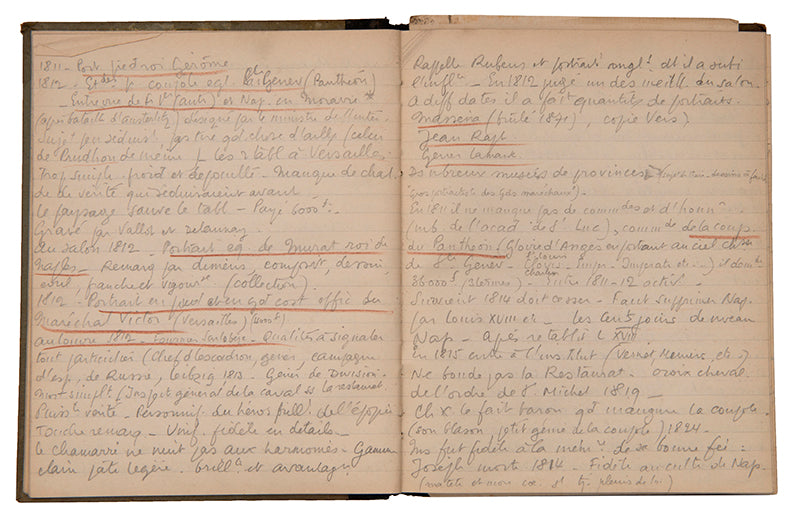 1811 - Port. pied roi Jérôme
1812 - Etdes pr coupole égl. Ste Genev (Panthéon)
- Entrevue de Fs 1er (autr) et Nap. en Moravie
(après bataille d'austerlitz) désigné par le ministre de l'inter.
Sujet peu séduist. pas tiré gd chose d'aill. (celui
de Prudhon de même) les 2 tabl à Versailles.
Trop simple froid et dépouillé - Manque de chal.
de vérité qui séduisaient avant.
Le paysage sauve le tabl - Payé 6000 f.
Gravé par Vallot et
Au salon 1812 - Portrait eq. de Murat roi de
Naples - Remarq par dimens, composit, dessin
coul, franche et vigour (collection).
1812 - Portrait en pied et en gd cost offic du
Maréchal Victor (Versailles)
au Louvre 1812 - Fournier Sarlovèze - Qualités à signaler
tout particulier (Chef d'escadron, génér. campagne
d'esp, de Russie, Leipsig 1813 - Génér de Division -
Mort simplt (Inspect général de la caval ss la restaurat.
Puisst vérité - Personnif. du héros brillt de l'épopée
Touche remarq - Unif. fidèle en détails -
Le chamarré ne nuit pas aux harmonies - Gamme
claire pâte légère. brillte et avantagse
Rappelle Rubens et portrait anglt. dt il a subi
l'inflce - En 1812 jugé un des meill du salon.
A diff dates il a fait quantités de portraits.
Masséna (brûlé 1871, copie Vers)
Jean Rapp
Génér Lahark
De nbreux musées de provinces
(gros portraitiste des Gds maréchaux) -
En 1811 il ne manque pas de commdes et d'honnrs
(mb de l'acad. de St Luc), commde de la coup.
du Panthéon (Gloire d'Anges emportant au ciel chasse
de Ste Genev - Clovis
36000 f - Entre 1811-12 activt.
Survient 1814 doit cesser - Faut supprimer Nap.
par Louis XVIII - les cent jours de nveau
Nap - Après rétabli L XVIII
En 1815 entre à l'institut (Vernet )
Ne boude pas la Restaurat. croix cheval.
de l'ordre de St Michel 1819 -
Ch X le fait baron qd inaugure la coupole
(son blason petit génie de la coupole) 1824 -
Mais fut fidèle à la mém de sa bonne
Joseph morte 1814 - Fidèle au culte de Nap.